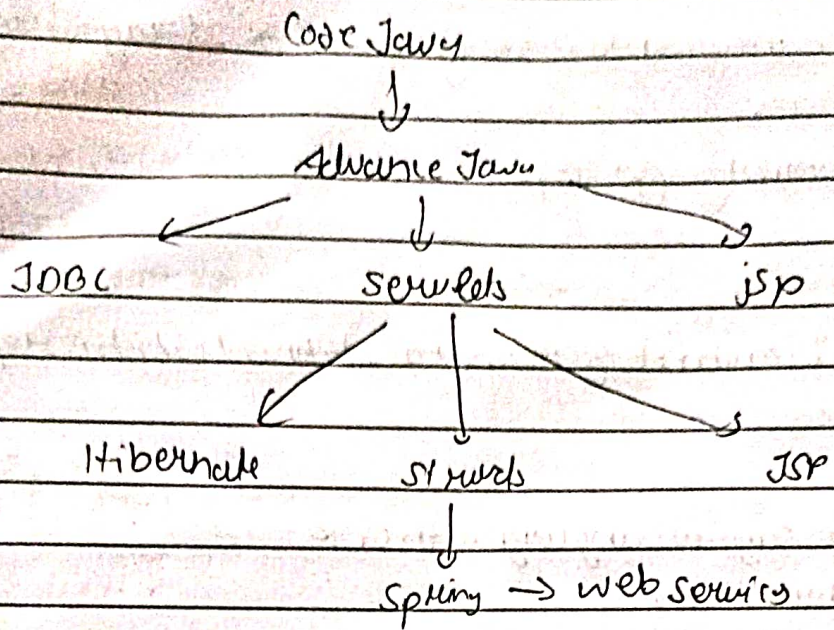 Core Java
Advance Java
JDBC servlets jsp
Hibernate struts JSP
Spring → web services